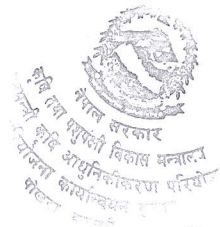 नेपाल सरकार
कृषि तथा पशुपंक्षी विकास मन्त्रालय
कृषि आधुनिकीकरण परियोजना
कार्यान्वयन